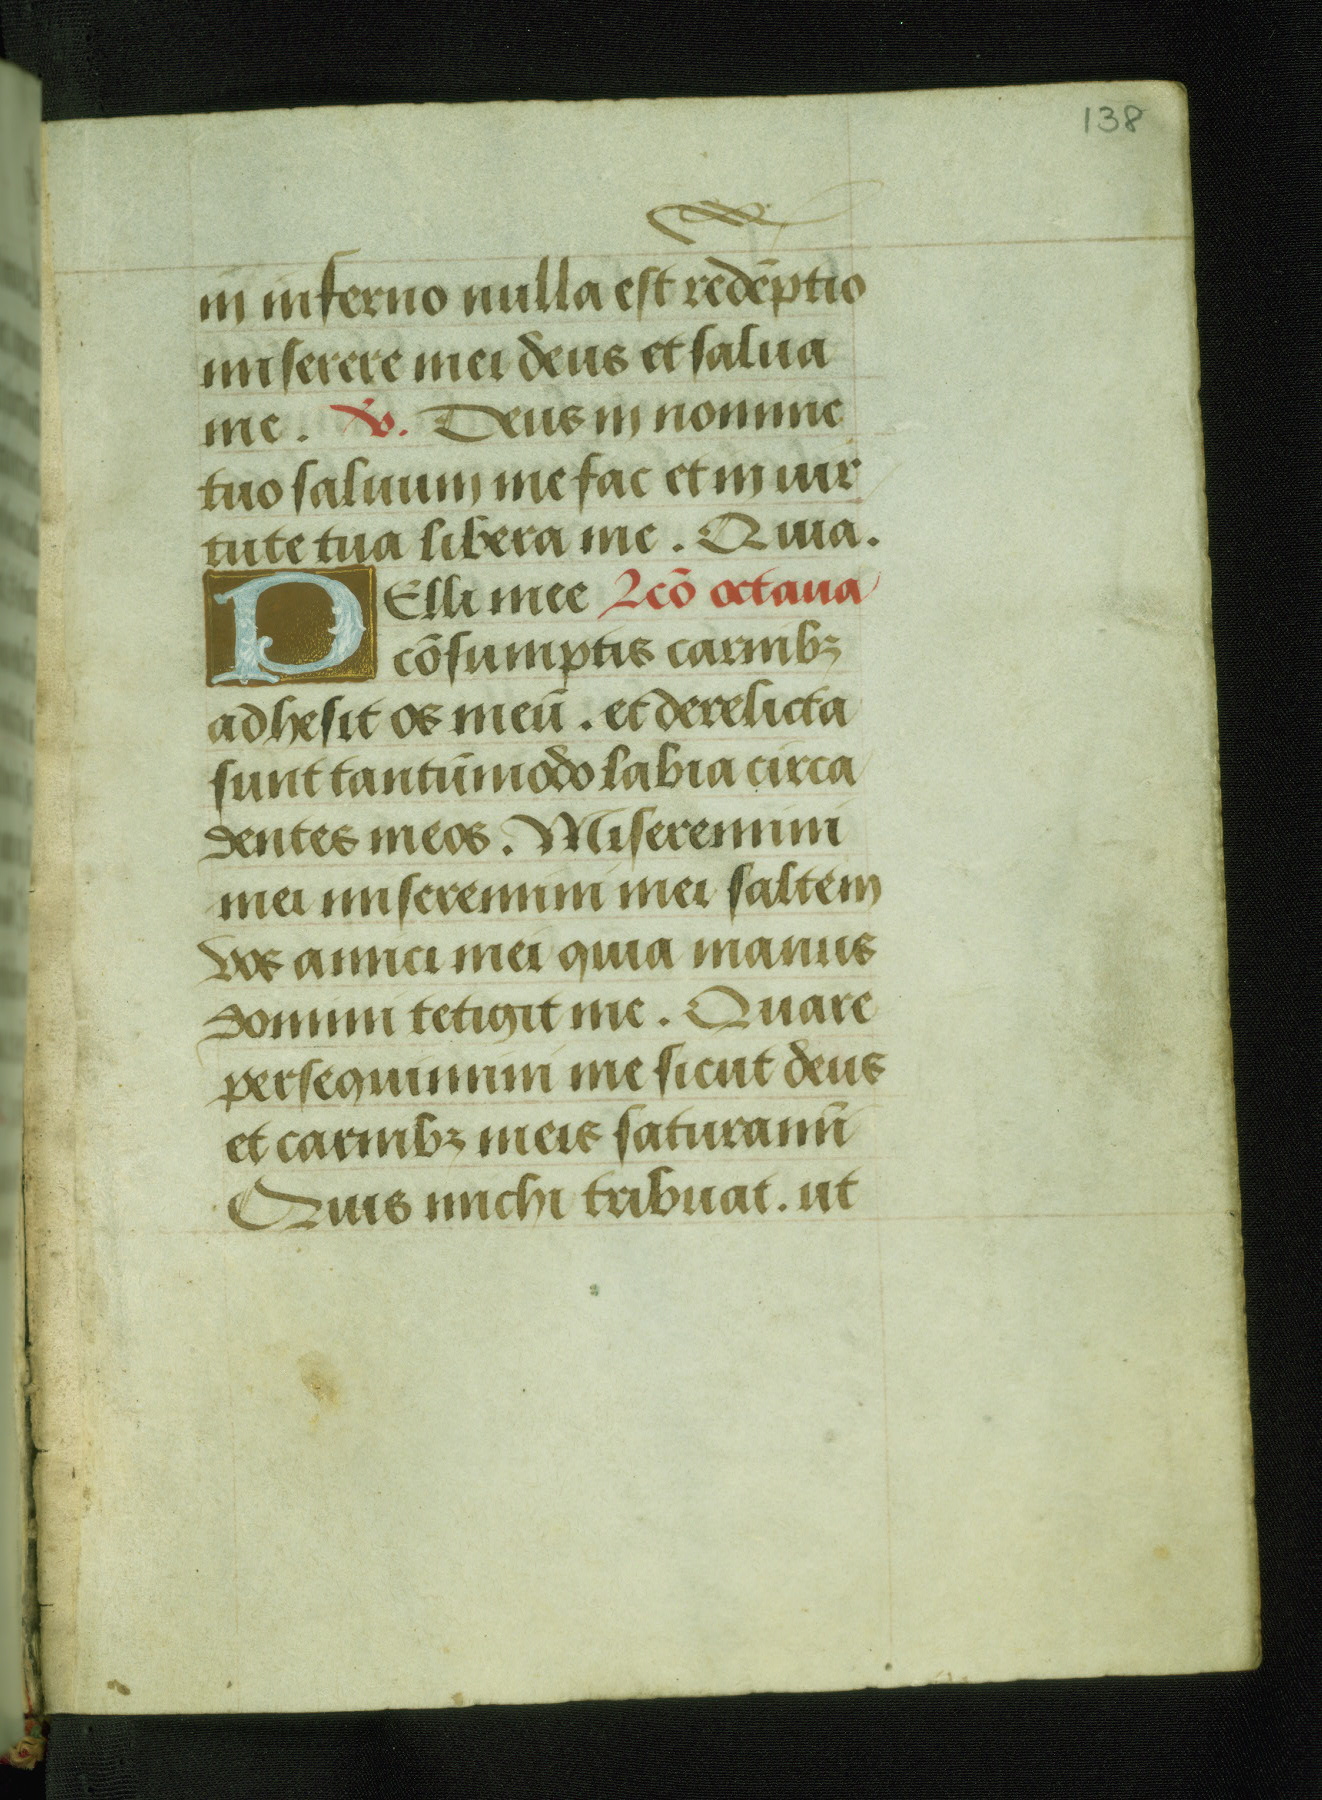 138
in inferno nulla est redēptio
miserere mei deus et salua
me. V. Deus in nomine
tuo saluum me fac et in uir
tute tua libera me. Quia.
PElli mee Lcō octaua
cōsumptis carnibꝫ
adhesit os meū. et derelicta
sunt tantūmodo labia circa
dentes meos. Miseremini
mei miseremini mei saltem
vos amici mei quia manus
domini tetigit me. Quare
persequimini me sicut deus
et carnibꝫ meis saturamī
Quis michi tribuat. ut